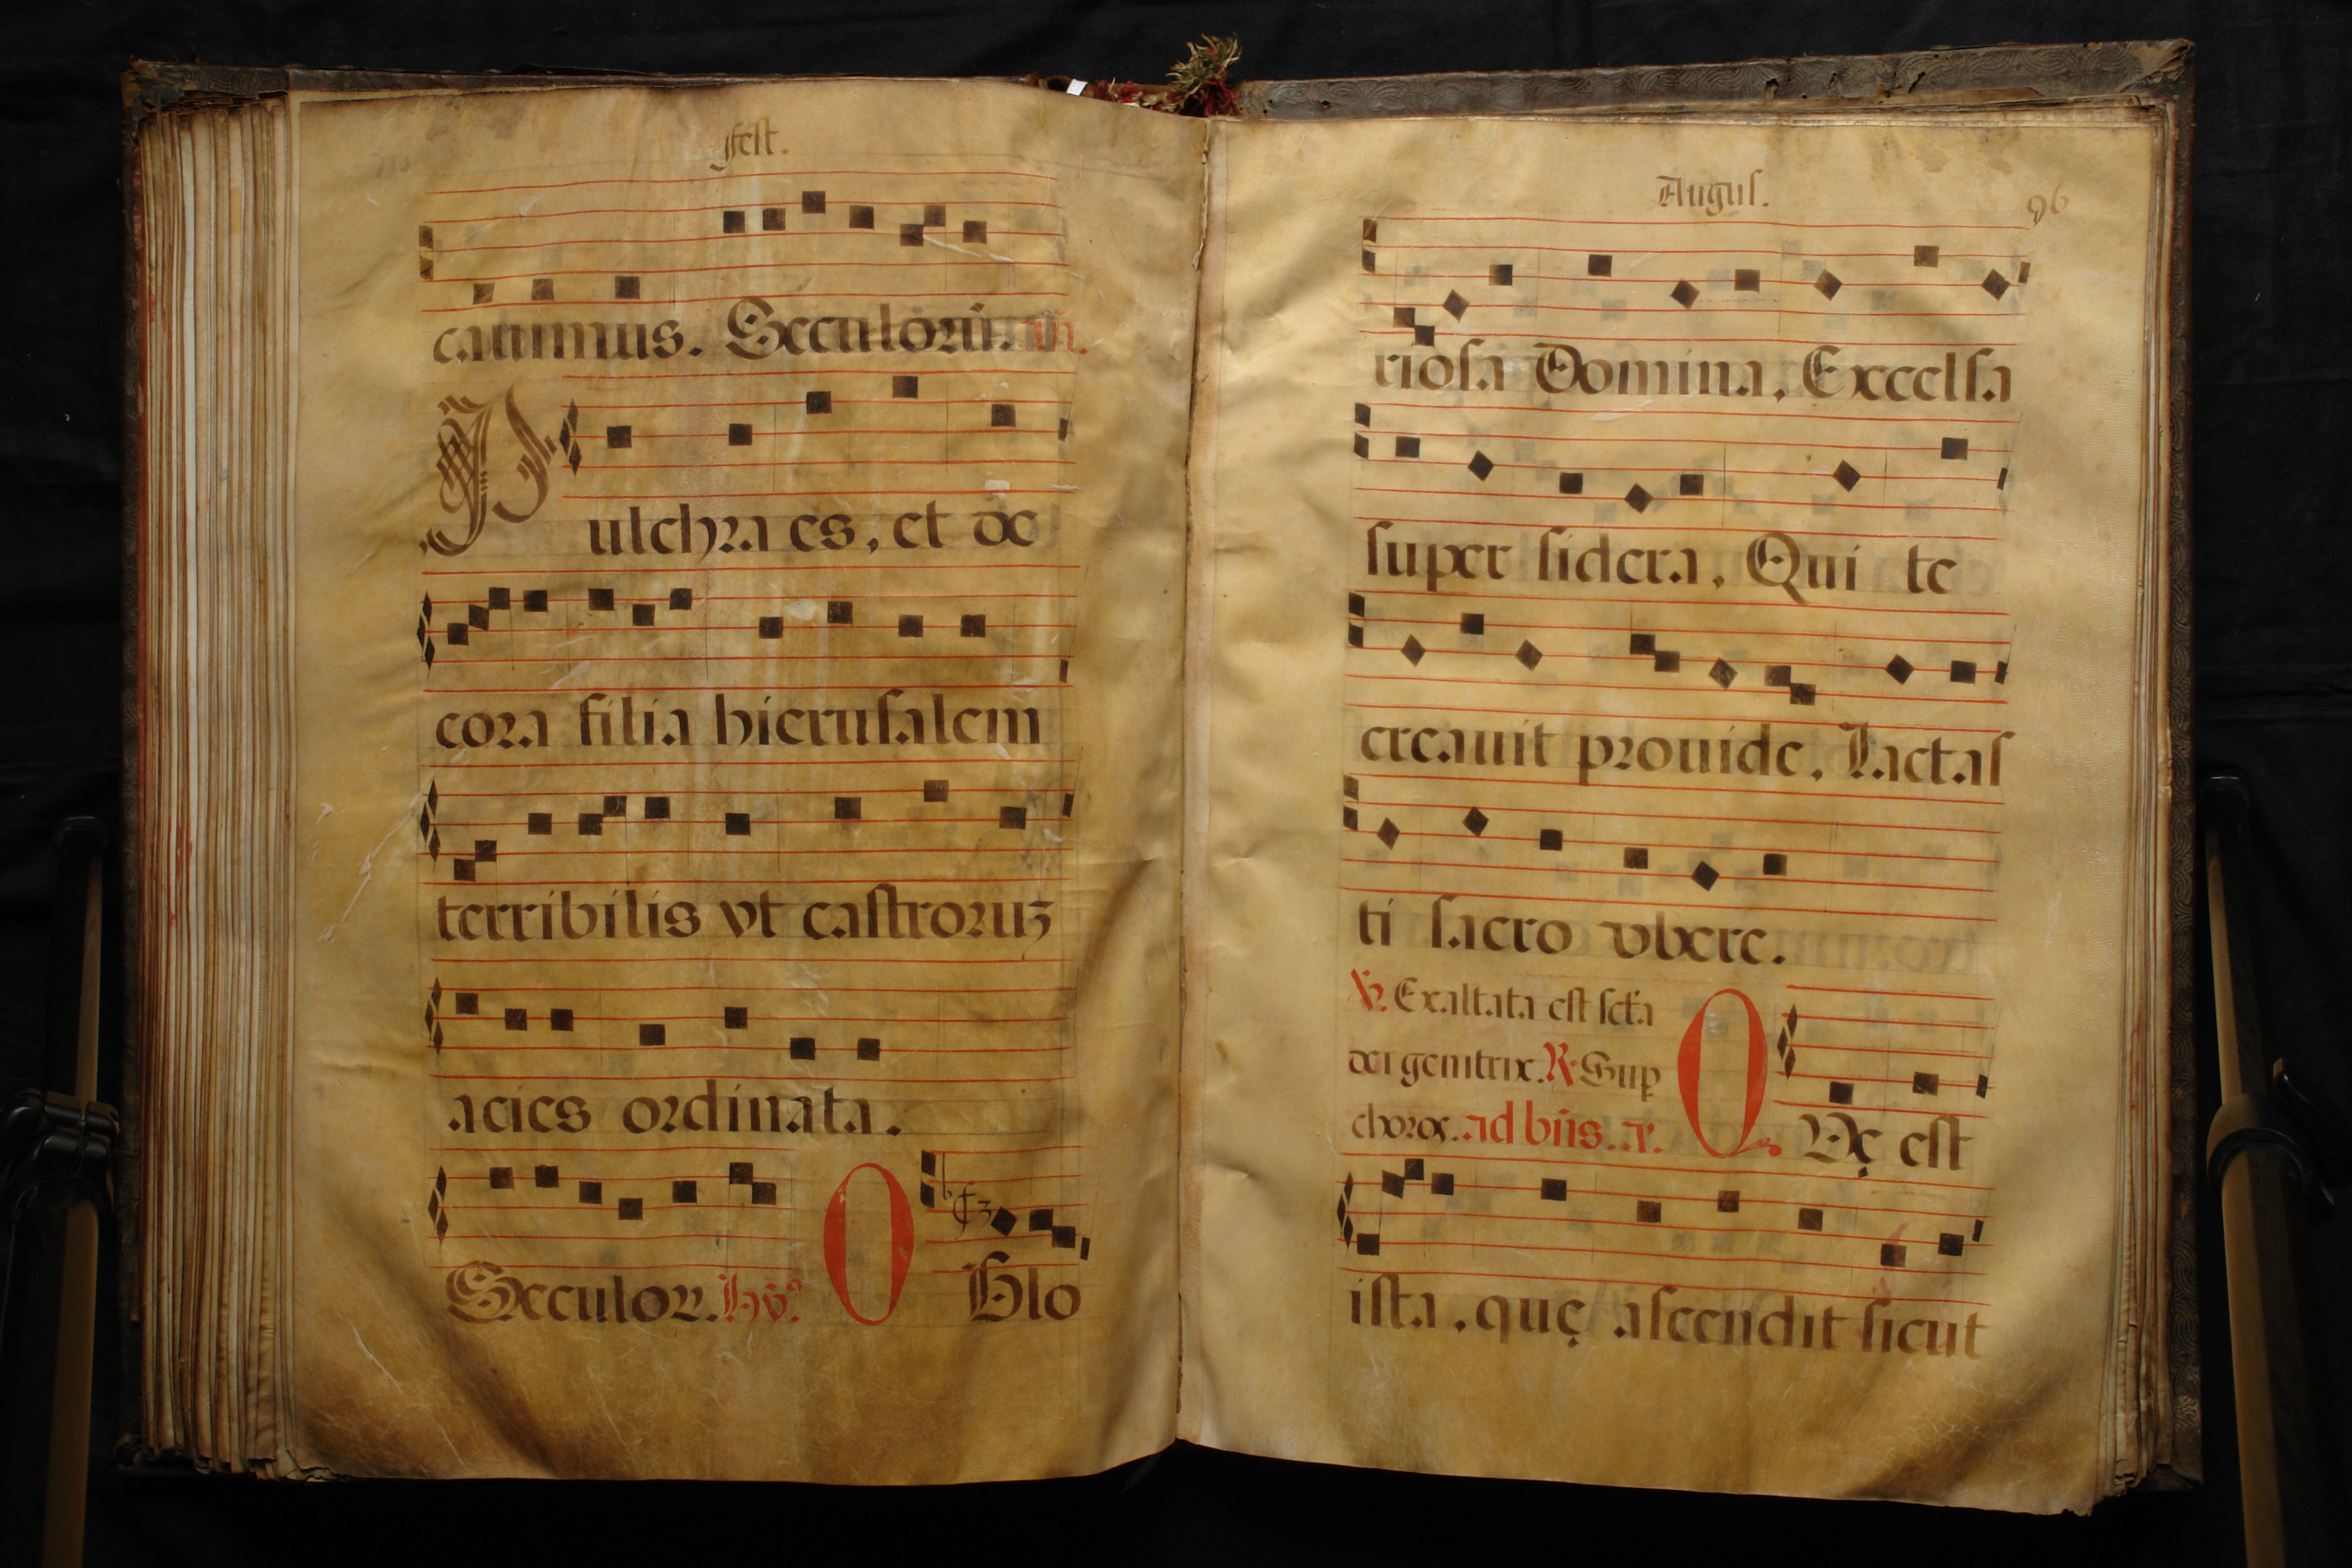 fest.
catimus. Seculorũ.
Pulchra es, et de
cora filia hierusalem
terribilis vt castroruz
acies ordinata.
Seculor. Hỹ⁹ O Glo
Augus. 96
riosa Domina, Excelsa
super sidera, Qui te
creauit prouide, Lactas
ti sacro vbere.
℣. Exaltata est sctã
dei genitrix. ℟. Sup
choros. ad bñs. añ. QVę est
ista, quę ascendit sicut